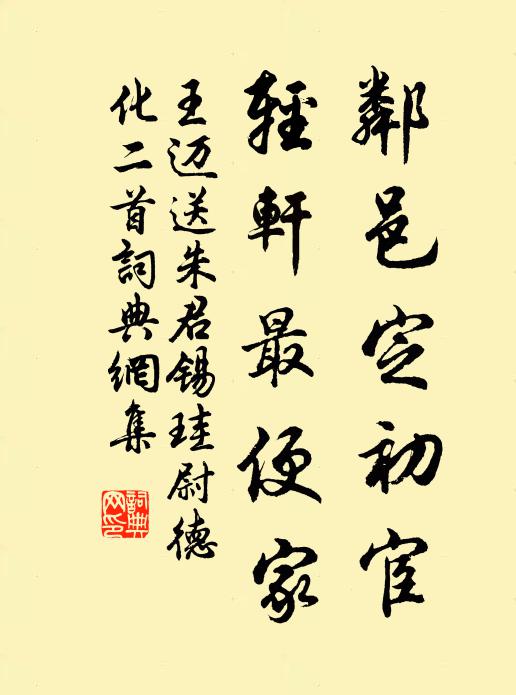 鄰邑定初宦
輕軒最便家
王迈送朱君锡珪尉德
化二首詞典網集
詞典网印